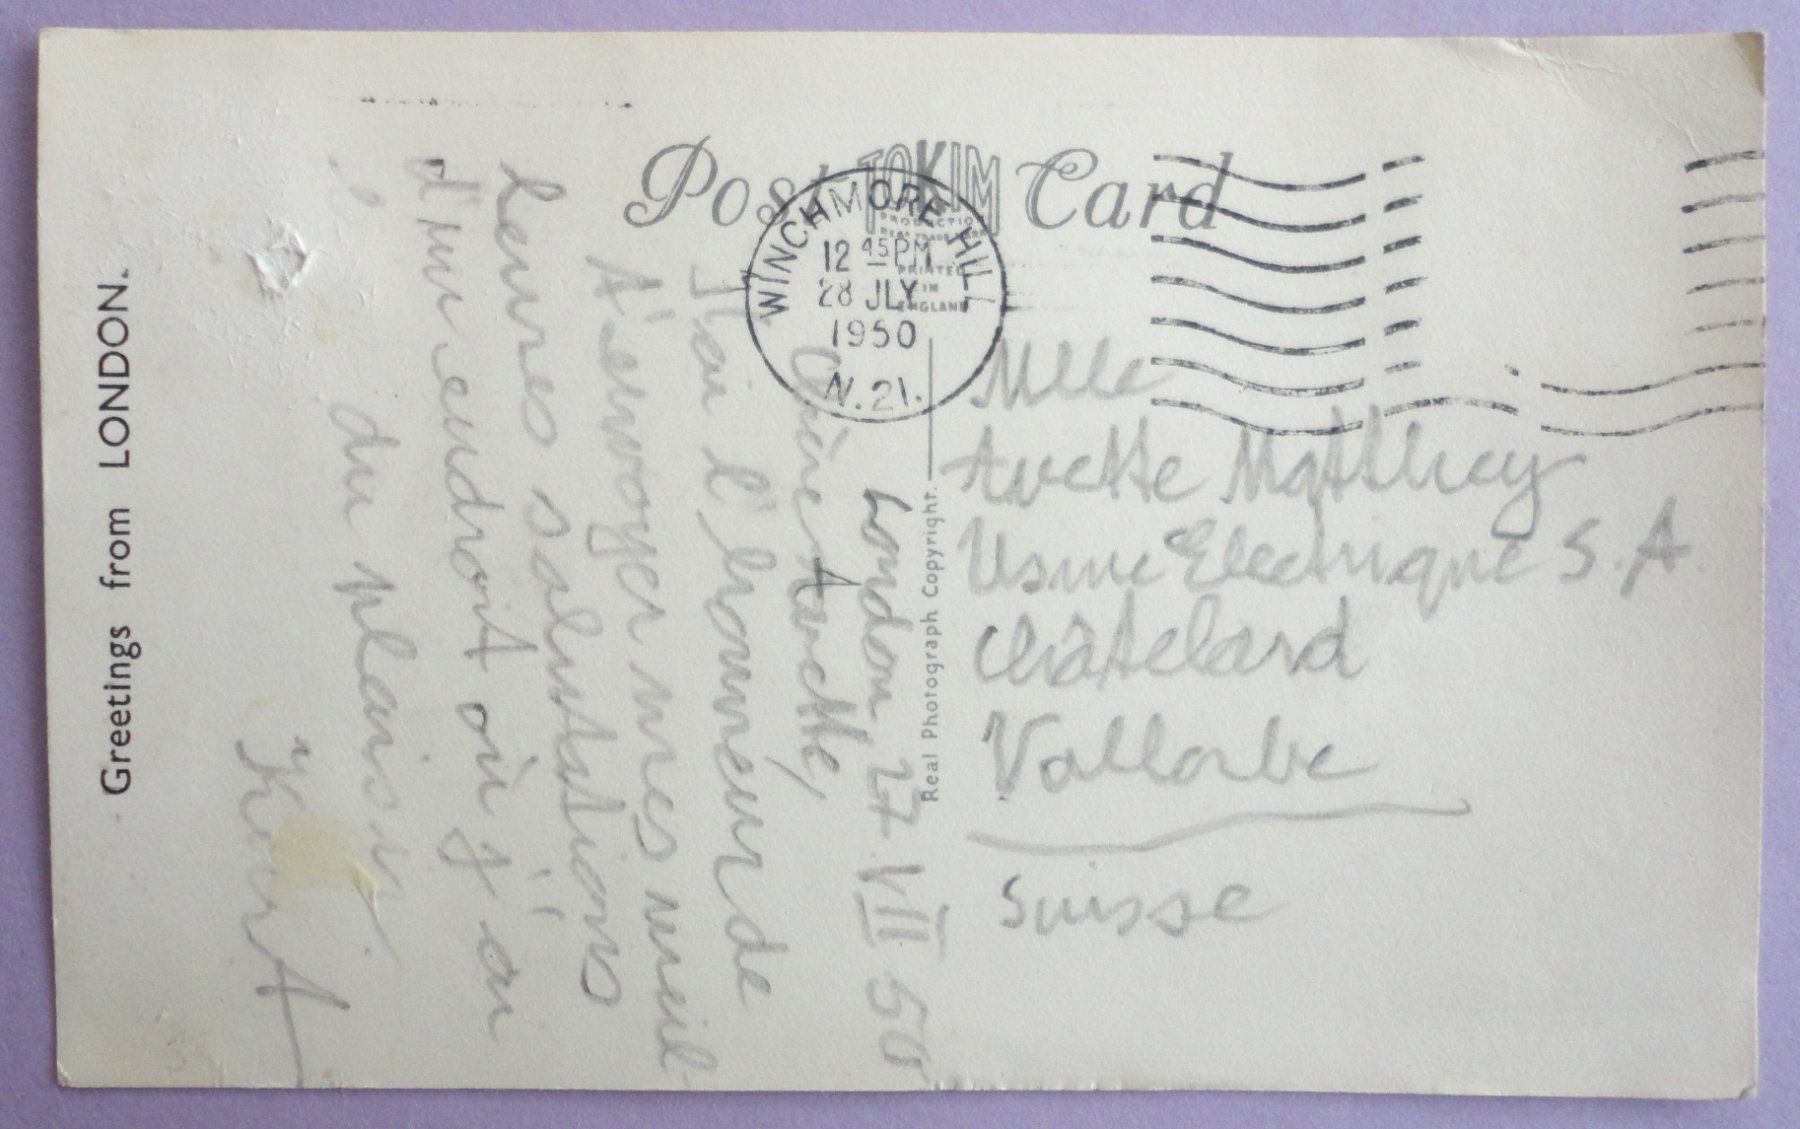 Greetings from LONDON.
Post Card
TOKIM
PRODUCTION
REAL TRADE MARK
PRINTED
IN
ENGLAND
WINCHMORE HILL
12 45 PM
28 JLY
1950
N.21.
Real Photograph Copyright.
London, 27 VII 50
Chère Yvette,
J'ai l'honneur de
t'envoyer mes meil-
leures salutations
d'un endroit où j'ai
du plaisir.
Kurt
Mlle
Yvette Matthey
Usine Electrique S.A
Châtelard
Vallorbe
Suisse